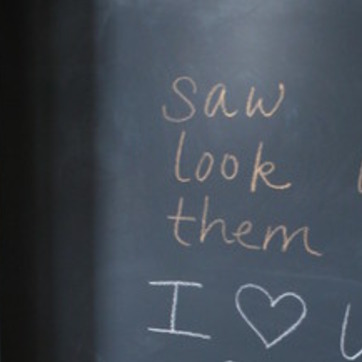 saw
look
them
I ♡